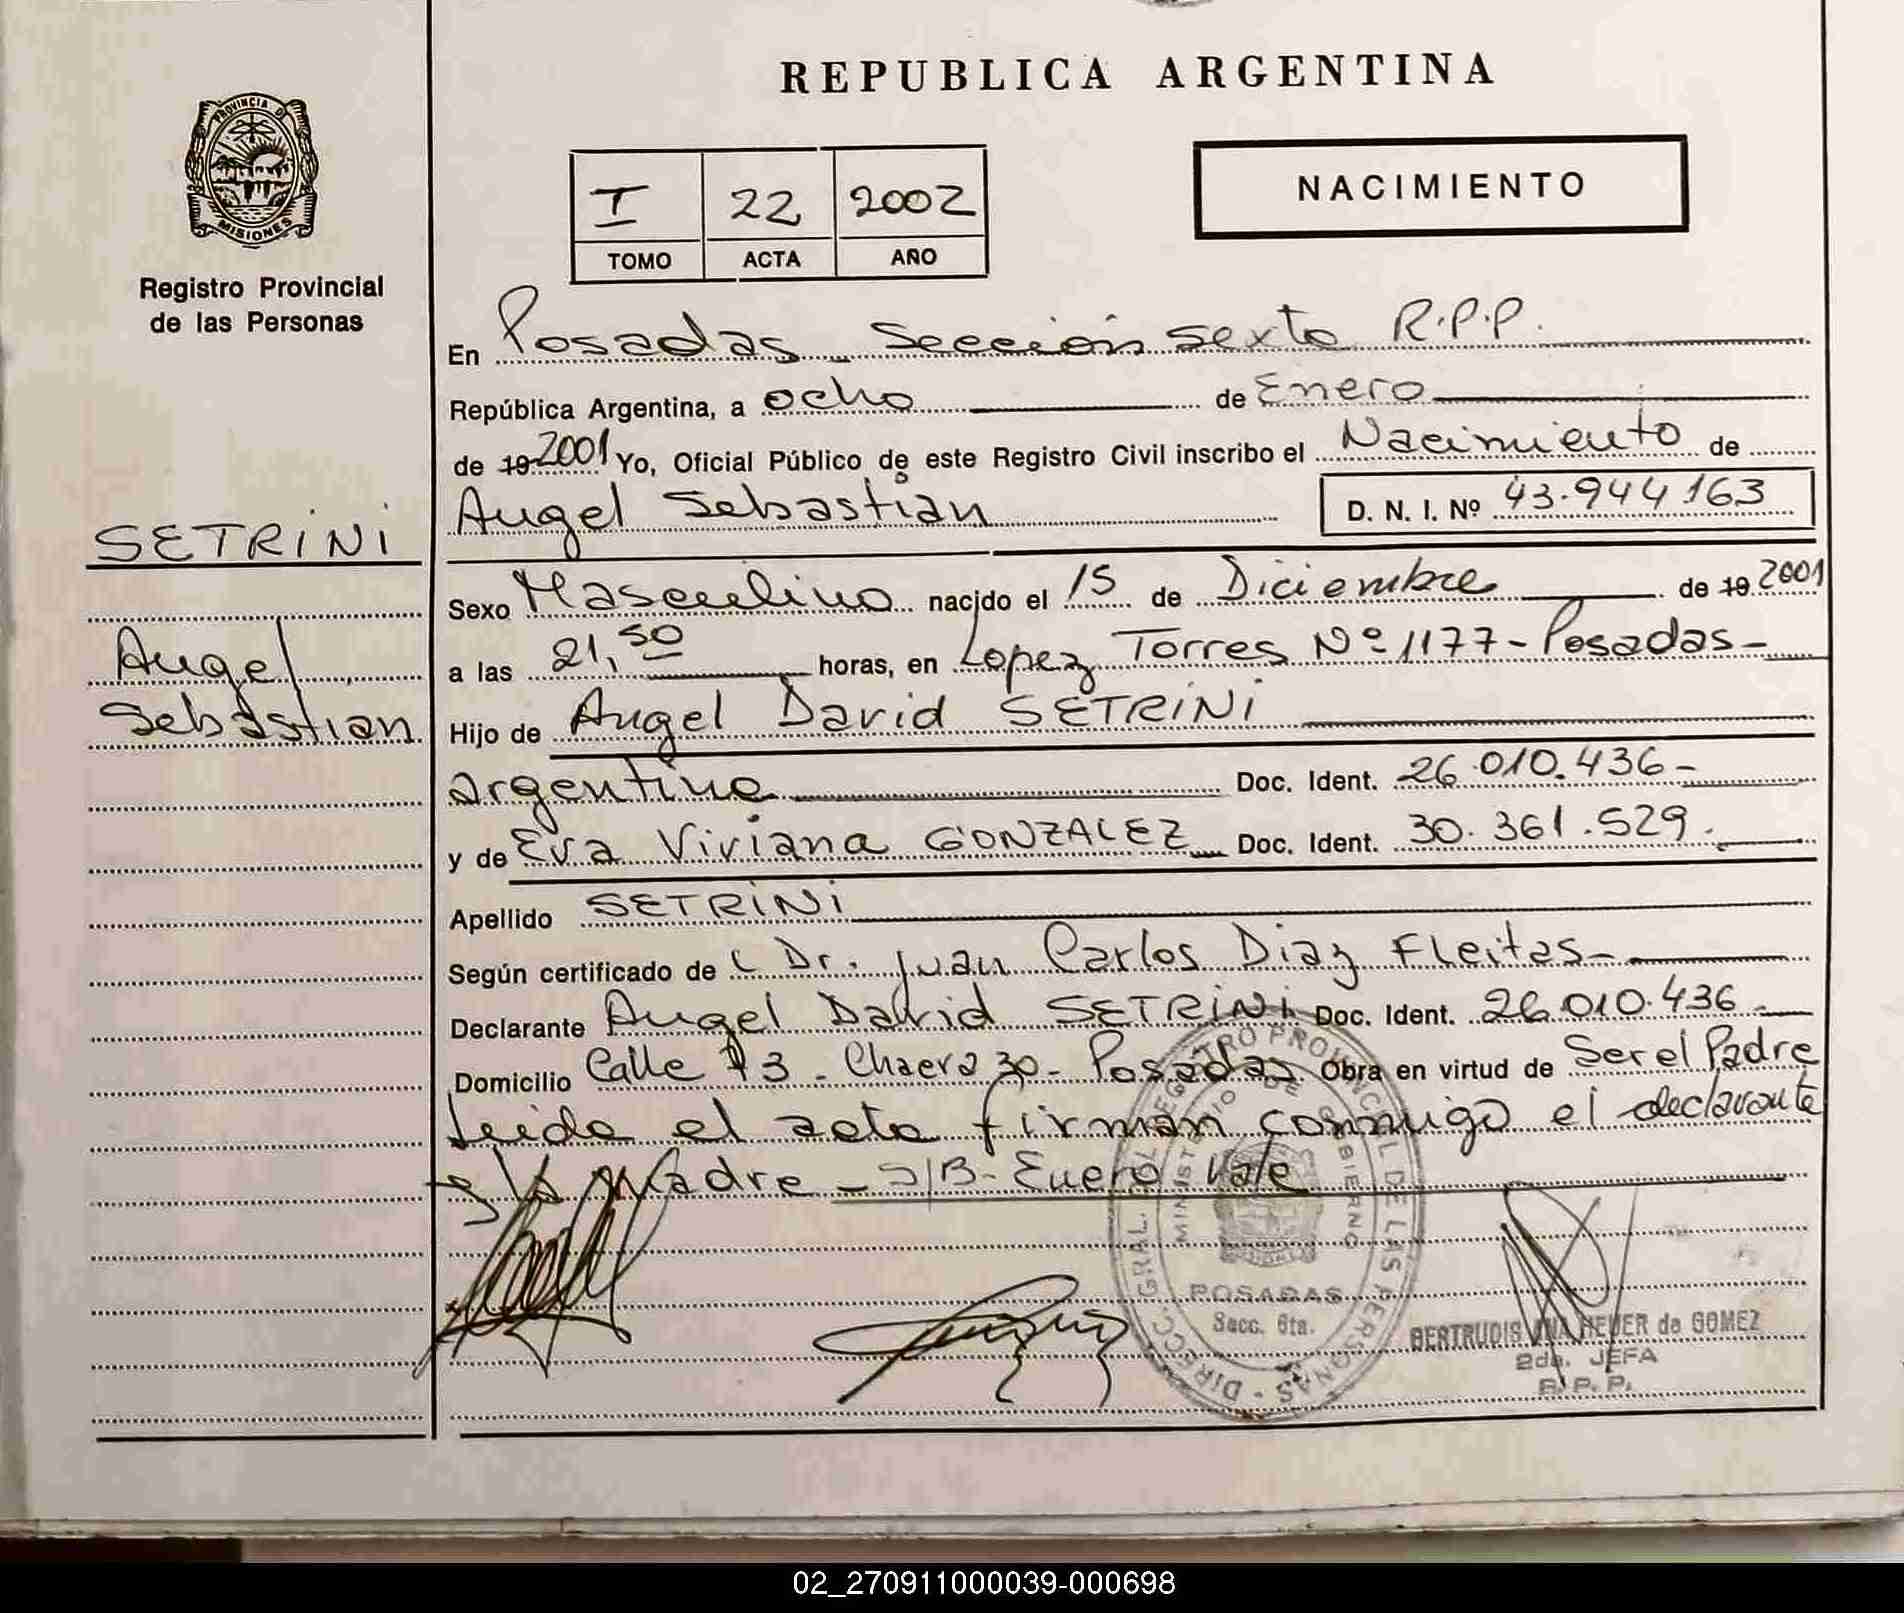 REPUBLICA ARGENTINA
PROVINCIA DE
MISIONES
Registro Provincial
de las Personas
I 22 2002
TOMO ACTA AÑO
NACIMIENTO
En Posadas Sección sexta R.P.P.
República Argentina, a ocho de Enero
de 19 2001 Yo, Oficial Público de este Registro Civil inscribo el Nacimiento de
Angel Sebastián D. N. I. Nº 43.944163
SETRINI
Angel
Sebastian
Sexo Masculino nacido el 15 de Diciembre de 19 2001
a las 21,50 horas, en Lopez Torres Nº 1177-Posadas-
Hijo de Angel David SETRINI
argentino Doc. Ident. 26.010.436-
y de Eva Viviana GONZALEZ Doc. Ident. 30.361.529.
Apellido SETRINI
Según certificado de Dr. Juan Carlos Diaz Fleitas-
Declarante Angel David SETRINI Doc. Ident. 26.010.436-
Domicilio Calle 13 - Chacra 30- Posadas Obra en virtud de Ser el Padre
Leida el acta firman conmigo el declarante
y la Madre - S/B- Enero Vale
DIREC. GRAL. DEL REGISTRO PROVINCIAL DE LAS PERSONAS
MINISTERIO DE GOBIERNO
POSADAS
Secc. 6ta.
BERTRUDIS ANA HEUER de GOMEZ
2da. JEFA
R. P. P.
02_270911000039-000698